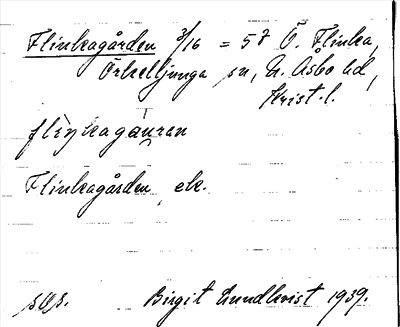 Flinkagården 3/16 = 5⁷ Ö. Flinka,
Örkelljunga sn, N. Åsbo hd,
Krist. l.
flìŋkagáuran
Flinkagården, ek.
Birgit Lundkvist 1939.